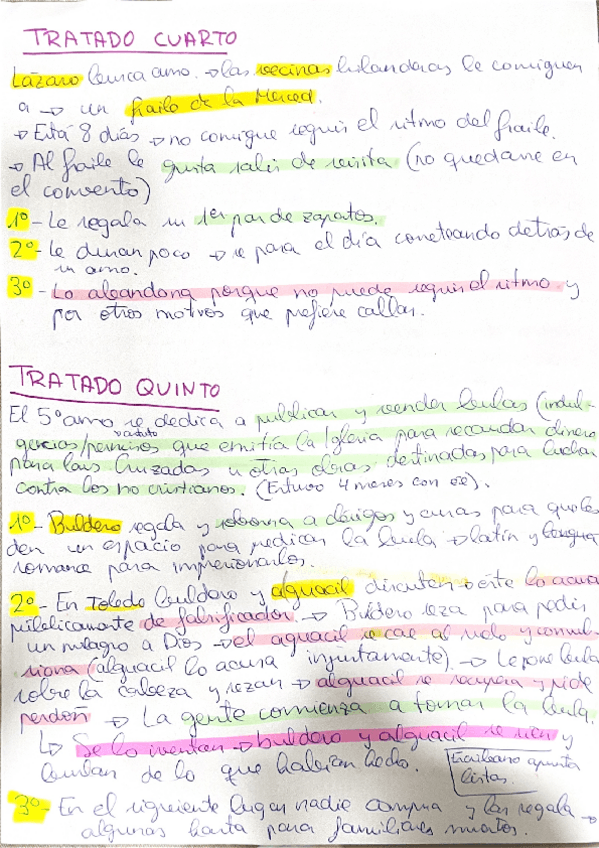 TRATADO CUARTO
Lázaro busca amo. → las vecinas hilanderas le consiguen
a → un fraile de la Merced.
→ Está 8 días → no consigue seguir el ritmo del fraile.
→ Al fraile le gusta salir de visita (no quedarse en
el convento)
1º - Le regala su 1er par de zapatos.
2º - Le duran poco → se pasa el día correteando detrás de
su amo.
3º - Lo abandona porque no puede seguir el ritmo y
por otros motivos que prefiere callar.
TRATADO QUINTO
El 5º amo se dedica a publicar y vender bulas (indul-
gencias/permisos que emitía la Iglesia para recaudar dinero
→ astuto
para las Cruzadas u otras obras destinadas para luchar
contra los no cristianos. (Estuvo 4 meses con ese).
1º - Buldero regala y soborna a clérigos y curas para que les
den un espacio para predicar la bula → latín y lengua
romance para impresionarlos.
2º - En Toledo buldero y alguacil discuten → este lo acusa
públicamente de falsificador. → Buldero reza para pedir
un milagro a Dios → el aguacil se cae al suelo y convul-
siona (alguacil lo acusa injustamente). → Le pone bula
sobre la cabeza y rezan → alguacil se recupera y pide
perdón → La gente comienza a tomar la bula.
↳ Se lo inventan → buldero y alguacil se ríen y
burlan de lo que habían hecho.
Escribano apunta
listas.
3º - En el siguiente lugar nadie compra y las regala →
algunas hasta para familiares muertos.